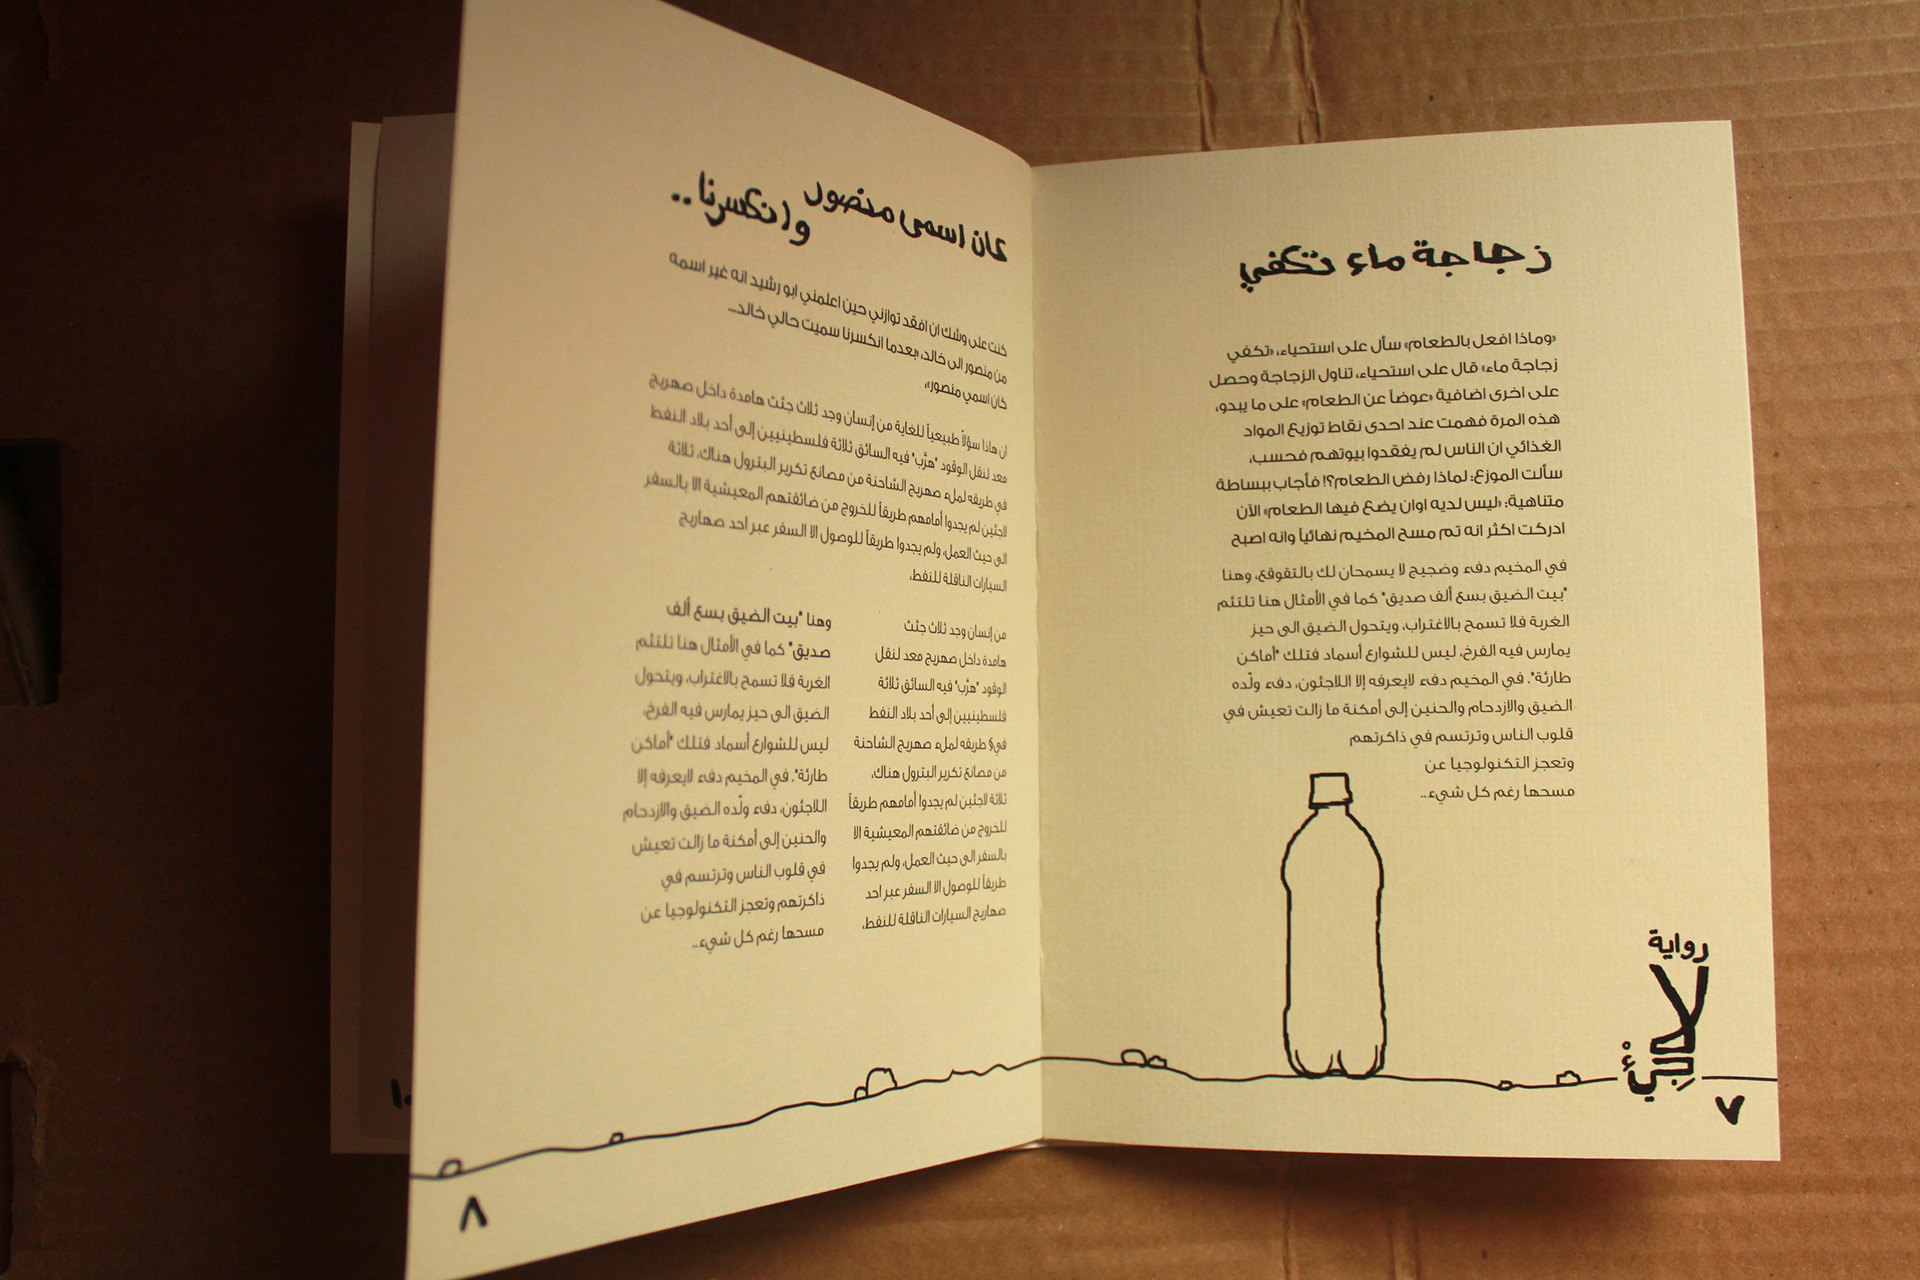 زجاجة ماء تكفي
«وماذا افعل بالطعام» سأل على استحياء، «تكفي
زجاجة ماء» قال على استحياء، تناول الزجاجة وحصل
على اخرى اضافية «عوضاً عن الطعام» على ما يبدو،
هذه المرة فهمت عند احدى نقاط توزيع المواد
الغذائي ان الناس لم يفقدوا بيوتهم فحسب،
سألت الموزع: لماذا رفض الطعام؟! فأجاب ببساطة
متناهية: «ليس لديه اوان يضع فيها الطعام» الآن
ادركت اكثر انه تم مسح المخيم نهائياً وانه اصبح
في المخيم دفء وضجيج لا يسمحان لك بالتقوقع، وهنا
"بيت الضيق بسع ألف صديق" كما في الأمثال هنا تلتئم
الغربة فلا تسمح بالاغتراب، ويتحول الضيق الى حيز
يمارس فيه الفرخ، ليس للشوارع أسماد فتلك "أماكن
طارئة". في المخيم دفء لايعرفه إلا اللاجئون، دفء ولّده
الضيق والازدحام والحنين إلى أمكنة ما زالت تعيش في
قلوب الناس وترتسم في ذاكرتهم
وتعجز التكنولوجيا عن
مسحها رغم كل شيء..
رواية
لاجئ
٧
كان اسمي منصور
وانكسرنا..
كنت على وشك ان افقد توازني حين اعلمني ابو رشيد انه غير اسمه
من منصور الى خالد، «بعدما انكسرنا سميت حالي خالد...
كان اسمي منصور»،
ان هاذا سؤلاً طبيعياً للغاية من إنسان وجد ثلاث جثث هامدة داخل صهريج
معد لنقل الوقود "هرَّب" فيه السائق ثلاثة فلسطينيين إلى أحد بلاد النفط
في طريقه لملء صهريج الشاحنة من مصانع تكرير البترول هناك، ثلاثة
لاجئين لم يجدوا أمامهم طريقاً للخروج من ضائقتهم المعيشية الا بالسفر
الى حيث العمل، ولم يجدوا طريقاً للوصول الا السفر عبر احد صهاريج
السيارات الناقلة للنفط،
من إنسان وجد ثلاث جثث
هامدة داخل صهريج معد لنقل
الوقود "هرَّب" فيه السائق ثلاثة
فلسطينيين إلى أحد بلاد النفط
في§ طريقه لملء صهريج الشاحنة
من مصانع تكرير البترول هناك،
ثلاثة لاجئين لم يجدوا أمامهم طريقاً
للخروج من ضائقتهم المعيشية الا
بالسفر الى حيث العمل، ولم يجدوا
طريقاً للوصول الا السفر عبر احد
صهاريج السيارات الناقلة للنفط،
وهنا "بيت الضيق بسع ألف
صديق" كما في الأمثال هنا تلتئم
الغربة فلا تسمح بالاغتراب، ويتحول
الضيق الى حيز يمارس فيه الفرخ،
ليس للشوارع أسماد فتلك "أماكن
طارئة". في المخيم دفء لايعرفه إلا
اللاجئون، دفء ولّده الضيق والازدحام
والحنين إلى أمكنة ما زالت تعيش
في قلوب الناس وترتسم في
ذاكرتهم وتعجز التكنولوجيا عن
مسحها رغم كل شيء..
٨
١٠